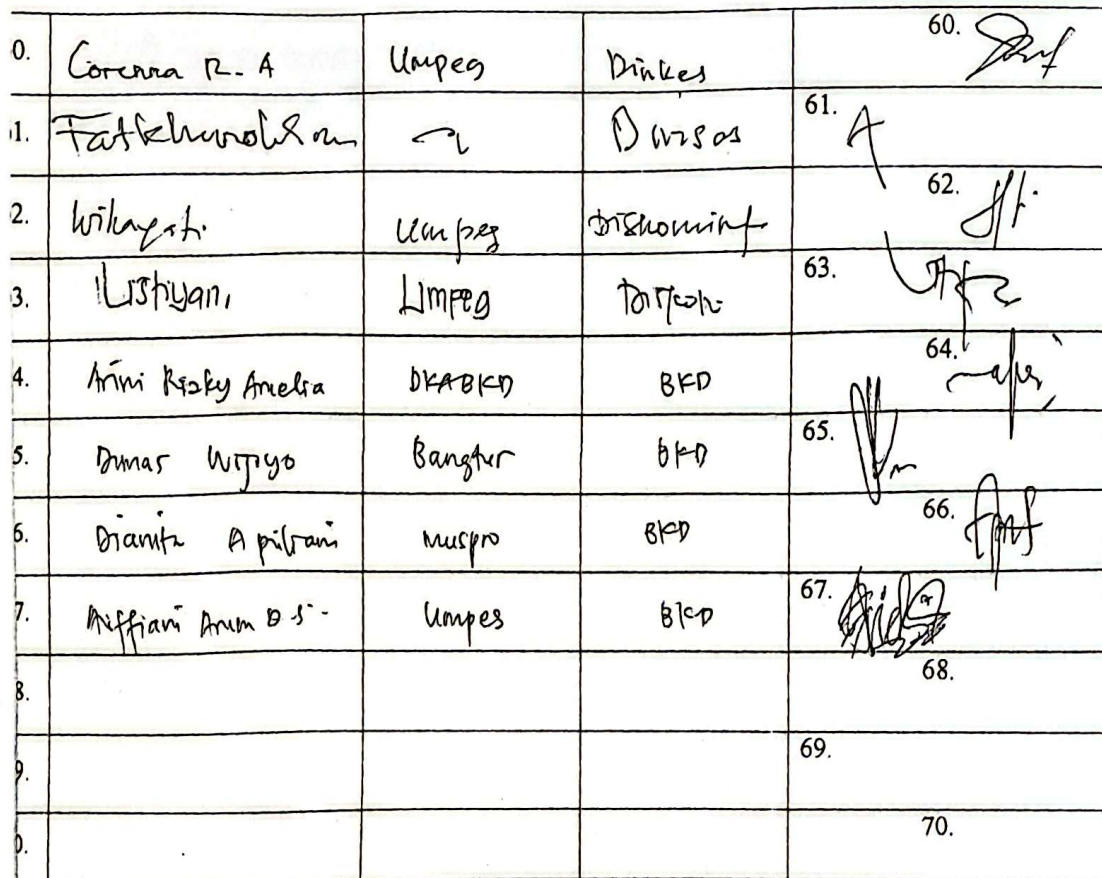 0. Corenna R. A Umpeg Dinkes 60.
1. Fatkhurohman Dinsos 61.
2. Wilayati Umpeg Diskominf 62.
3. Listiyani Umpeg 63.
4. Arini Rizky Amelia DKABKD BKD 64.
5. Dimas Wijiyo Bangtur BKD 65.
6. Dianita Apiliani muspro BKD 66.
7. Aiffiani Arum D S. Umpeg BKD 67.
8. 68.
9. 69.
0. 70.